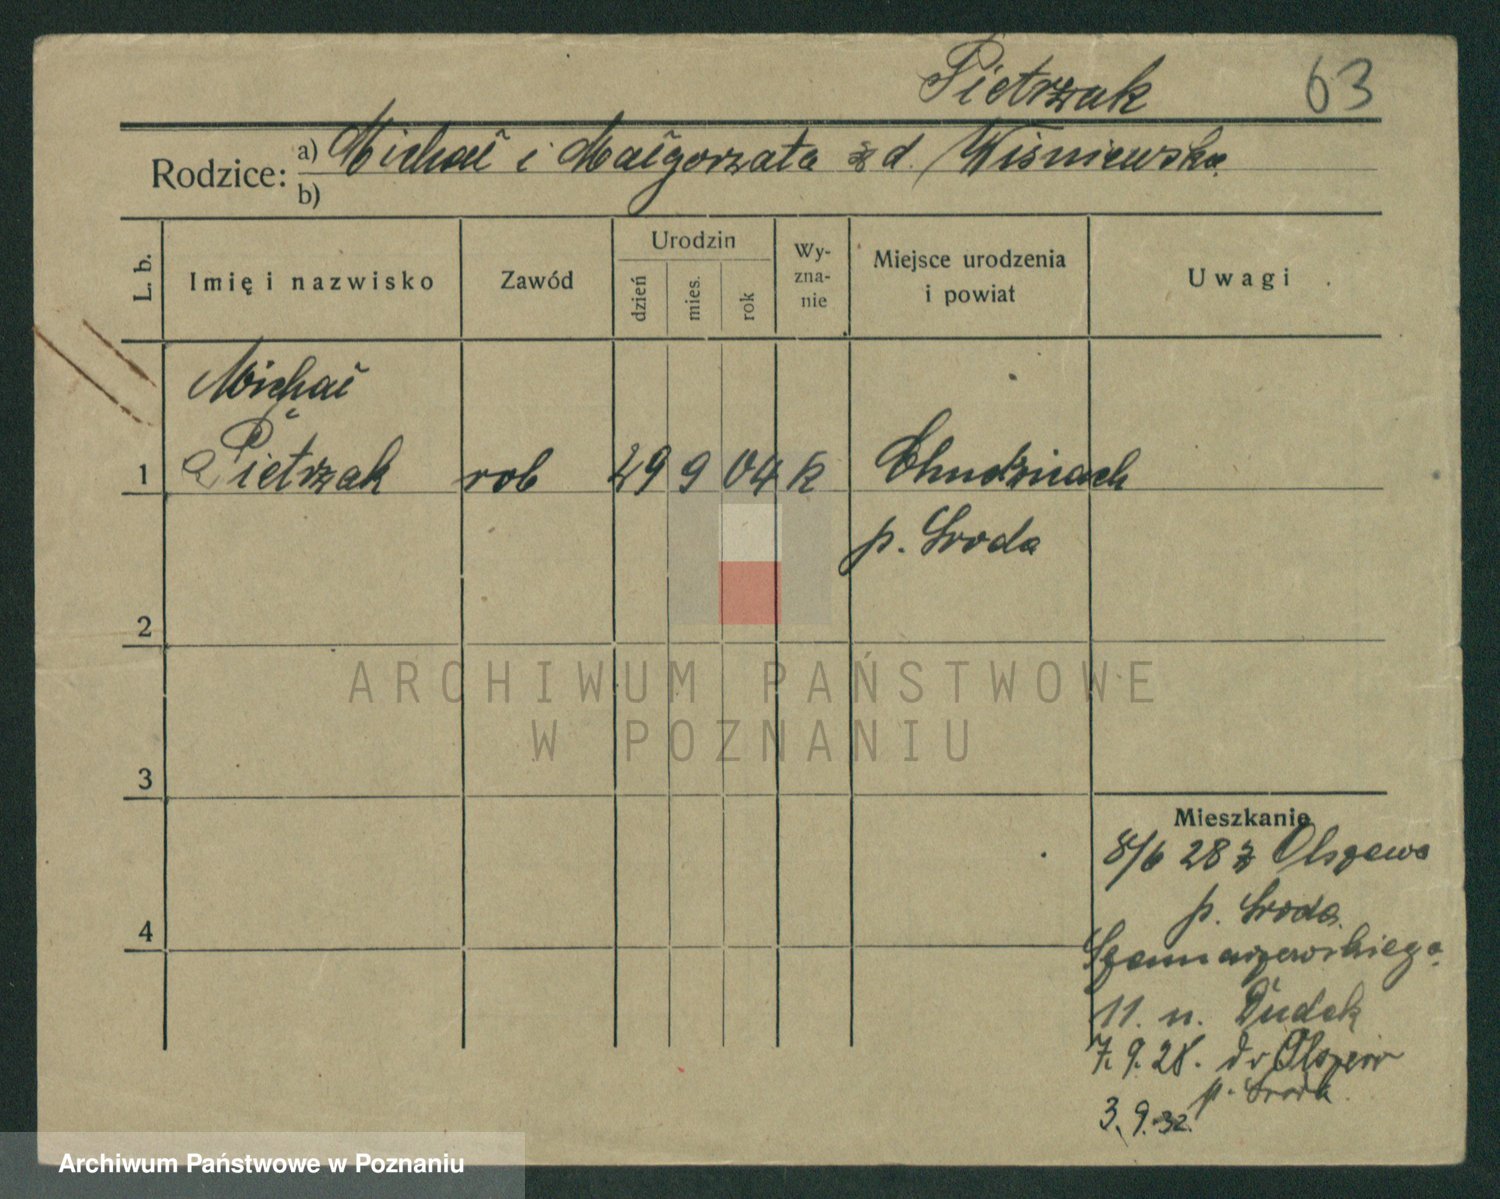 Pietrzak 63
Rodzice: a) Michał i Małgorzata z d. Wiśniewska
b)
L. b. Imię i nazwisko Zawód Urodzin dzień mies. rok Wy-zna-nie Miejsce urodzenia i powiat Uwagi
Michał
1 Pietrzak rob 29 9 04 k Chudzicach
p. Środa
2
ARCHIWUM PAŃSTWOWE
W POZNANIU
3
Mieszkanie
8/6 28 z Olszewa
p. Środa
4
Szamarzewskiego
11. u. Dudek
7. 9. 28. do Olszew
p. Środa
3. 9. 32.
Archiwum Państwowe w Poznaniu